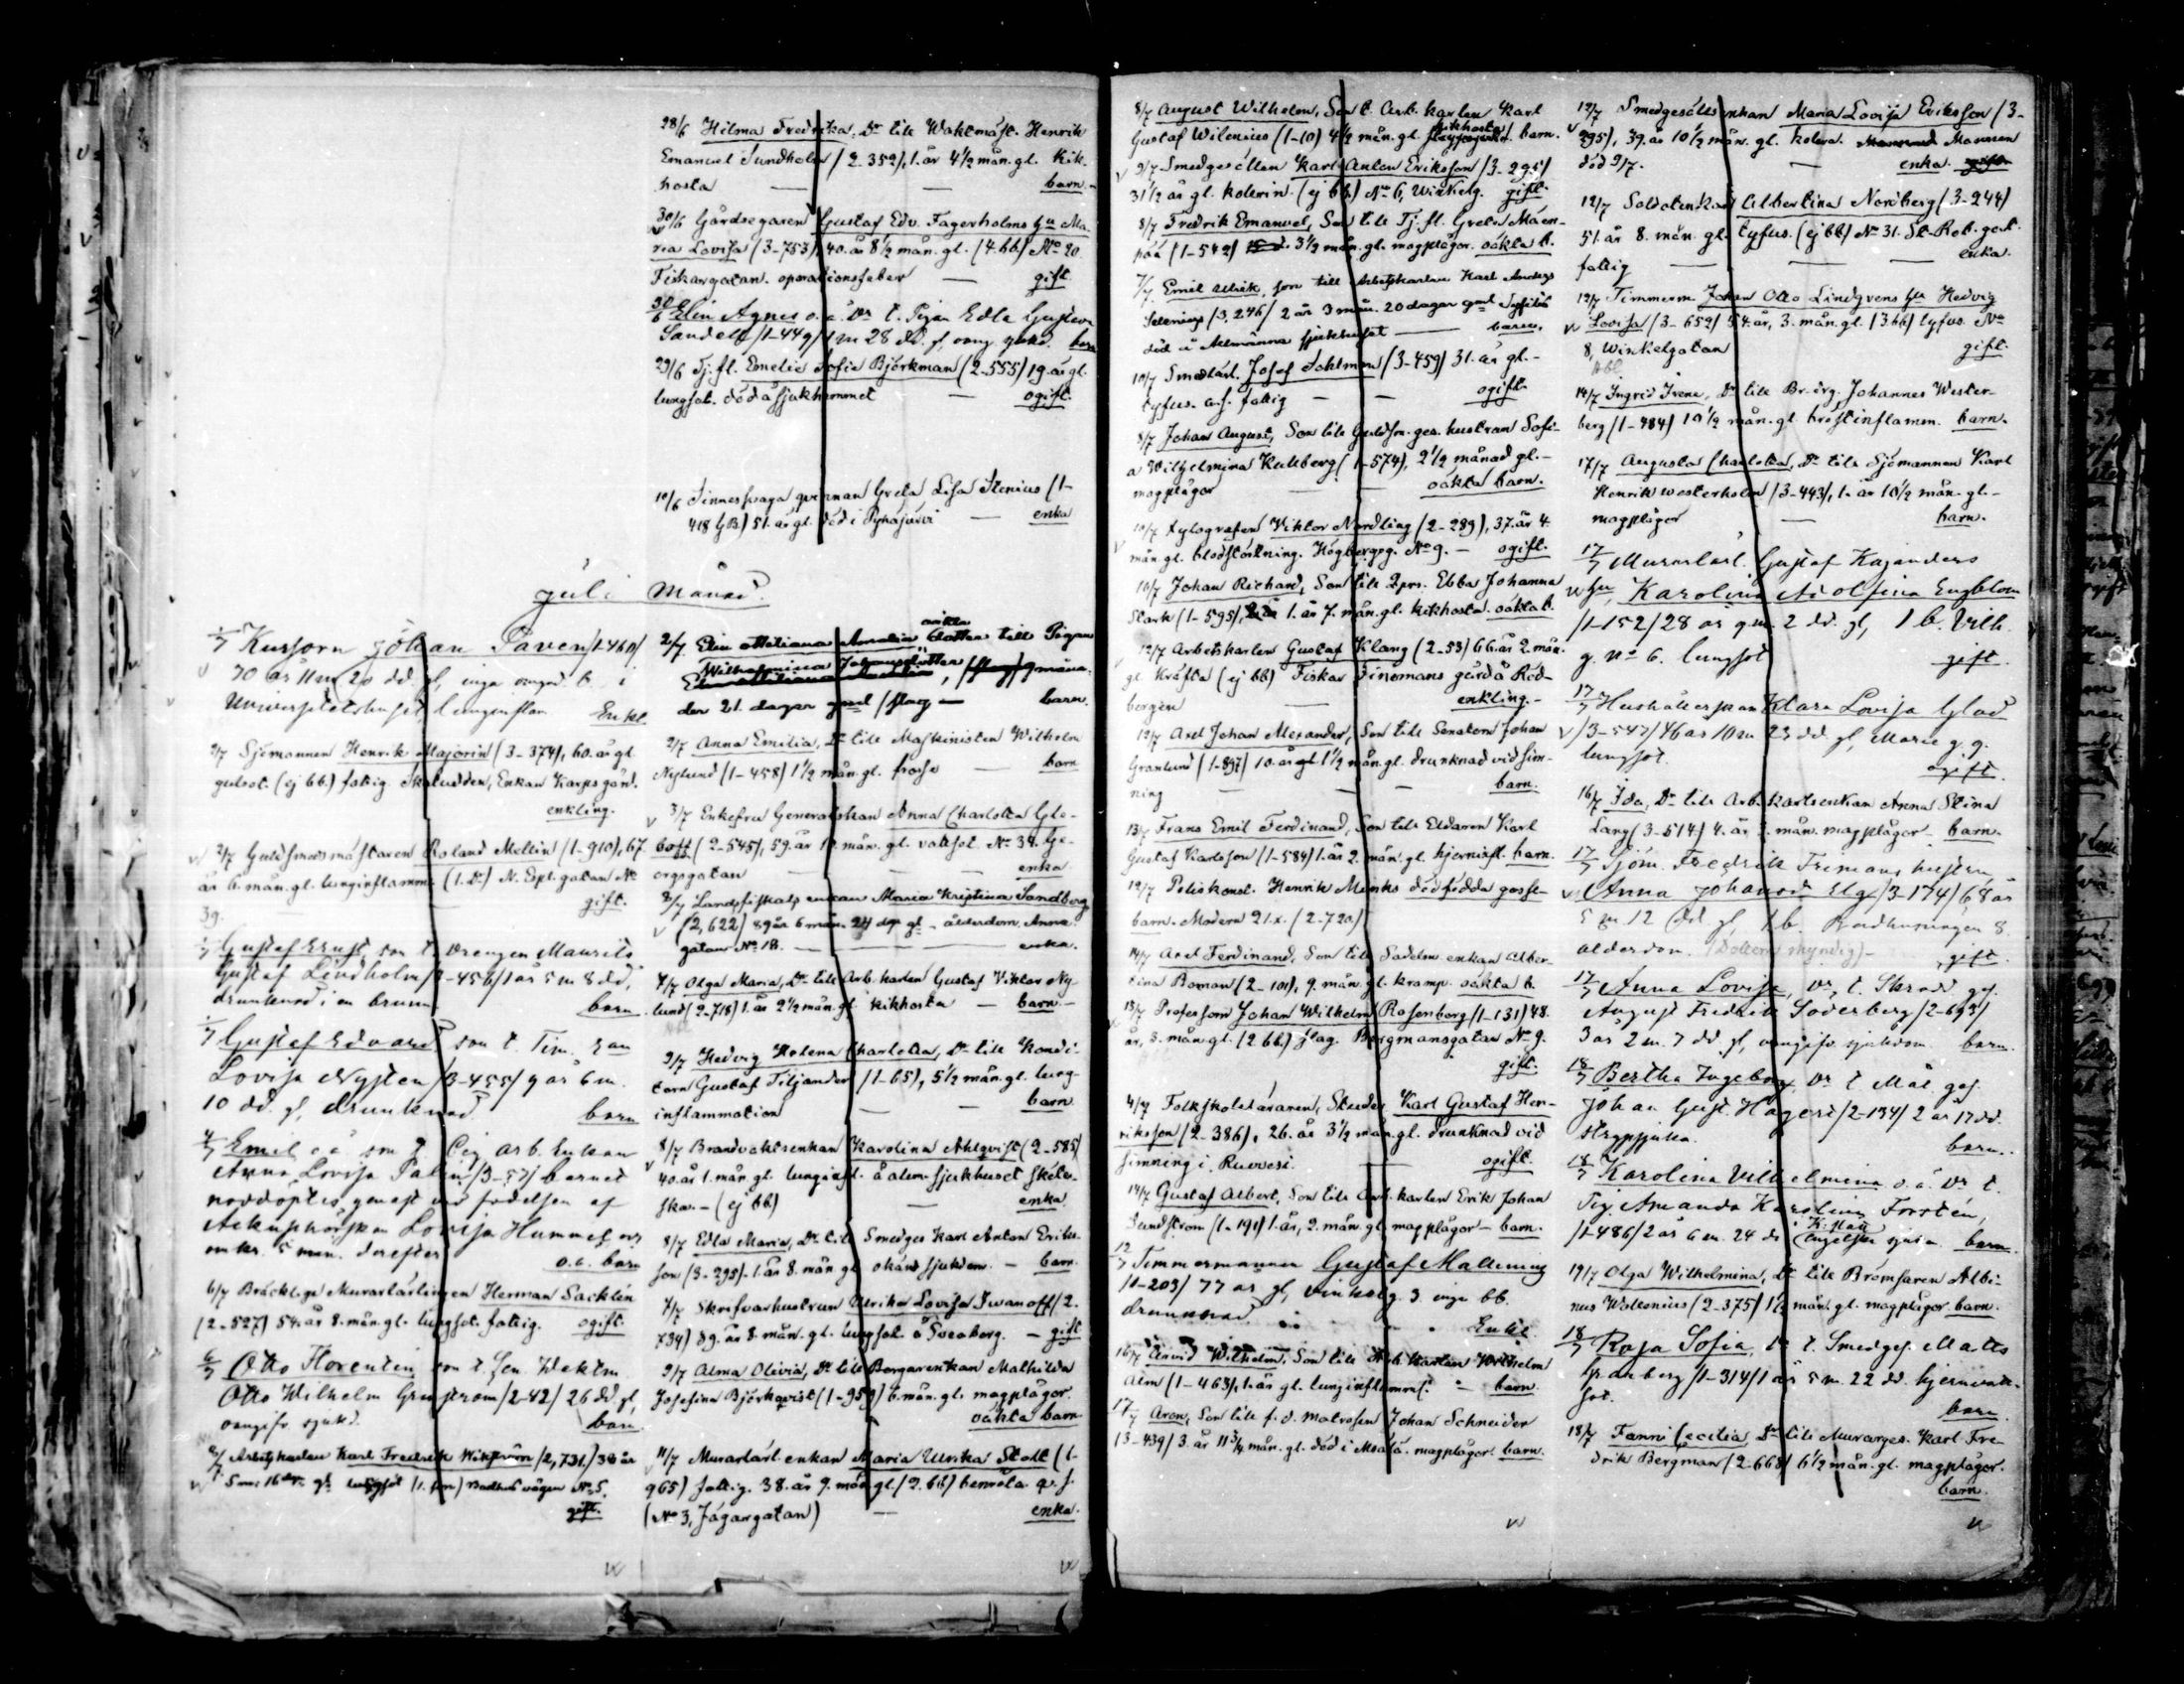 28/6 Hilma Fredrika, Dr till Waktmäst. Henrik
Emanuel Sundholm (2-352), 1. år 4½ mån. gl. kik-
hosta — — barn.
30/6 Gårdsegaren Gustaf Edv. Fagerholms hu Ma-
ria Lovisa (3-753), 40. år 8½ mån. gl. (4. bb) No 20
Fiskargatan. operationsfeber — gift.
30/6 Elin Agnes o. ä. Dr t. Pigan Edla Gustava
Sandell /1-449/ 1 m 28 dd. gl, barn
29/6 Tj. fl. Emelie Sofia Björkman (2-555) 19. år gl.
lungsot. död å sjukhemmet — ogift.
10/6 Sinnessvaga qvinnan Greta Lisa Stenius (1-
418 GB) 51. år gl. död i Pyhäjärvi — enka
Juli Månad.
1/7 Johan Paven /1-460/
70 år 11 m 20 dd. gl, inga b. i
Universitetshuset lunginflam. Enkl.
2/7 Sjömannen Henrik Majorin (3-374), 60. år gl.
gulsot. (ej bb.) fattig Skatudden, Enkan Karps gård.
enkling.
2/7 Guldsmedsmästaren Roland Mellin (1-910), 67
år 6. mån. gl. lunginflamm. (1. Dr.) N. Espl. gatan No
39. gift.
1/7 Gustaf Ernst, son t. Drengen Maurits
Gustaf Lindholm /2-456/ 1 år 5 m 8 dd,
drunknad i en brunn barn.
1/7 Gustaf Edvard son t. Tim.
Lovisa Nysten /3-455/ 9 år 6 m.
10 dd. gl, drunknad barn
4/7 Emil o ä son t. Arb. Enkan
Anna Lovisa Palen /3-57/ barnet
nöddöptes genast vid födelsen af
Ackushörskan Lovisa Hummel
omkr. 5 min. derefter o. ä. barn
6/7 Bräcklige Murarlärlingen Herman Sacklén
(2-527) 54. år 8. mån. gl. lungsot. fattig. ogift.
6/7 Otto Florentin son t.
Otto Wilhelm Grnström /2-42/ 26 dd gl,
oangifv. sjukd. barn
8/7 Arbetskarlen Karl Fredrik Wikström /2,731/ 38 år
5 m: 16 dr. gl. lungsot No 5.
gift.
2/7 Elin Ottiliana Amalia oäkta dotter till Pigan
Wilhelmina Johansdotter, 9 måna-
der 21. dagar gaml slag — barn.
2/7 Anna Emilia, Dr till Maskinisten Wilhelm
Nylund (1-458) 1½ mån. gl. frosse — barn
3/7 Enkefru Generalskan Anna Charlotta Gle-
boff (2-545), 59. år 10. mån. gl. vattsot. No 38. Ge-
orgsgatan — — enka
2/7 Landsfiskals enkan Maria Kristina Sandberg
(2,622) 89 år 6 mån. 24 dgr gl - ålderdom. Anna-
gatan No 18. — enka.
7/7 Olga Maria, Dr till Arb. karlen Gustaf Viktor Ny-
lund (2-718) 1. år 2½ mån. gl. kikhosta — barn.
9/7 Hedvig Helena Charlotta, Dr till Kondi-
torn Gustaf Tiljander /1-65), 5½ mån. gl. lung-
inflammation — — barn
8/7 Brandvaktsenkan Karolina Ahlqvist (2-585)
40. år 1. mån. gl. å alm. sjukhuset
(ej bb) — enka
8/7 Edla Maria, Dr till Smedges Karl Anton Eriks-
son (3-295). 1. år 8. mån. gl. okänd sjukdom. — barn.
7/7 Skrifvarhustrun Ulrika Lovisa Iwanoff (2.
734) 39. år 8. mån. gl. lungsot. å Sveaborg. — gift
9/7 Alma Olivia, Dr till Borgarenkan Mathilda
Josefina Björkqvist (1-959) 6. mån. gl. magplågor.
oäkta barn
11/7 Murarlärl. enkan Maria Ulrika Skott (1-
965) fattig. 38. år 9. mån. gl. (2. bb)
(No 3, Jägargatan) — enka.
8/7 August Wilhelm, Son t. Arb. karlen Karl
Gustaf Wilenius (1-10) 4½ mån. gl. kikhosta barn.
9/7 Smedgesällen Karl Anton Eriksson /3-295/
31½ år gl. kolerin. (ej bb) No 6, Winkelg. gift.
8/7 Fredrik Emanuel, Son till Tj. fl. Greta Mäen-
pää (1-542) 3½ mån. gl. magplågor. oäkta b.
7/7 Emil Ulrik, son till Arbetskarlen Karl Anders
Selenius /3,246/ 2 år 3 mån. 20 dagar gml Syfilis
död å Allmänna sjukhuset — barn.
10/7 Smedlärl. Josef Sahlman (3-459) 31. år gl.-
tyfus. fattig — — ogift.
8/7 Johan August, Son till Guldsm. ges. hustrun Sofi-
a Wilhelmina Kullberg (1-574), 2½ månad gl.-
magplågor — oäkta barn.
10/7 Xylografen Viktor Nordling (2-289), 37. år 4.
mån. gl. blodstörtning. Högbergsg. No 9. — ogift.
10/7 Johan Richard, Son till Qprs. Ebba Johanna
Stark (1-595), 1. år 7. mån. gl. kikhosta. oäkta b.
12/7 Arbetskarlen Gustaf Klang (2-53) 66. år 2. mån.
gl. kräfta (ej bb) Fiskar Finomans gård å Röd-
bergen — enkling.-
12/7 Axel Johan Alexander, Son till Senatorn Johan
Granlund (1-897) 10. år 1½ mån. gl. drunknad vid sim-
ning — — — barn.
13/7 Frans Emil Ferdinand, Son till Eldaren Karl
Gustaf Karlsson (1-584) 1. år 2. mån. gl. hjerninfl. barn.
12/7 Poliskonst. Henrik Munks dödfödda gosse-
barn. Modern 21. x. (2-720)
14/7 Axel Ferdinand, Son till Sadelm. enkan Alber-
tina Boman (2-101), 9. mån. gl. kramp. oäkta b.
13/7 Professorn Johan Wilhelm Rosenberg (1-131) 48.
år, 3. mån. gl. (2 bb) slag. Bergmansgatan No 9.
gift.
4/7 Folkskoleläraren, Studer. Karl Gustaf Hen-
riksson (2-386), 26. år 3½ mån. gl. drunknad vid
simning i Ruovesi. — ogift.
14/7 Gustaf Albert, Son till Arb. karlen Erik Johan
Sundström (1-191) 1. år, 2. mån. gl. magplågor — barn.
12/7 Timmermannen Gustaf Mallening
/1-203/ 77 år gl, vinkelg. 3 inga bb.
drunknad Enkl.
16/7 Arvid Wilhelm, Son till Arb. karlen Wilhelm
Alm (1-463), 1. år gl. lunginflamm. — barn.
17/7 Aron, Son till f. d. Matrosen Johan Schneider
(3-439) 3. år 11¾ mån. gl. död i magplågor. barn.
12/7 Smedgesällsenkan Maria Lovisa Eriksson (3-
295), 39. år 10½ mån. gl. kolera. Mannen
död 9/7. — enka.
12/7 Soldatenkan Albertina Nordberg (3-244)
51. år 8. mån. gl. tyfus. (ej bb) No 31. St. Rob. gat.
fattig — — enka.
12/7 Timmerm. Johan Otto Lindgrens hu Hedvig
Lovisa /3-652/ 54. år, 3. mån. gl. (3 bb) tyfus. No
8, Winkelgatan gift.
14/7 Ingrid Irene, Dr till Br. drg. Johannes Wester-
berg (1-484) 10½ mån. gl. bröstinflamm. barn.
17/7 Augusta Charlotta, Dr till Sjömannen Karl
Henrik Westerholm /3-443/, 1. år 10½ mån. gl.-
magplågor — barn.
17/7 Murarlärl. Gustaf Kajanders
hu, Karolina Adolfina Engblom
/1-152/ 28 år 9 m. 2 dd. gl, 1 b. Vilh.
g. No 6. lungsot gift.
17/7 Hushållerskan Klara Lovisa Glad
/3-547/ 46 år 10 m 23 dd. gl, Marie g. 9.
lungsot. ogift.
16/7 Ida, Dr till Arb. karlsenkan Anna Stina
Lang (3-514) 4. år mån. magplågor — barn.
17/7 Sjöm. Fredrik Frimans hustru,
Anna Johansdr Elg /3-174/ 68 år
5 m 12 dd. gl, 1 b. Brobhusvägen 8.
ålderdom. gift.
17/7 Anna Lovisa, Dr t. Skradd. ges.
August Fredrik Söderberg /2-693/
3 år 2 m. 7 dd. gl, oangifv. sjukdom. barn.
18/7 Bertha Ingeborg Dr t. Mål. ges.
Johan Gust. Hagert /2-134/ 2 år 17 dd.
strypsjuka. barn..
18/7 Karolina Vilhelmina o. ä. Dr t.
Pig. Amanda Karolina Forstén,
/1-486/ 2 år 6 m. 24 dd. Engelska sjukan. barn.
19/7 Olga Wilhelmina, Dr till Bromsaren Albi-
nus Waltonius (2-375) 1½ mån. gl. magplågor. barn.
18/7 Rosa Sofia, Dr t. Smedges. Matts
Granberg /1-314/ 1 år 5 m. 22 dd. hjernvatt-
sot. barn
18/7 Fanni Cecilia Dr till Murarges. Karl Fre-
drik Bergman (2-668) 6½ mån. gl. magplågor.
barn.